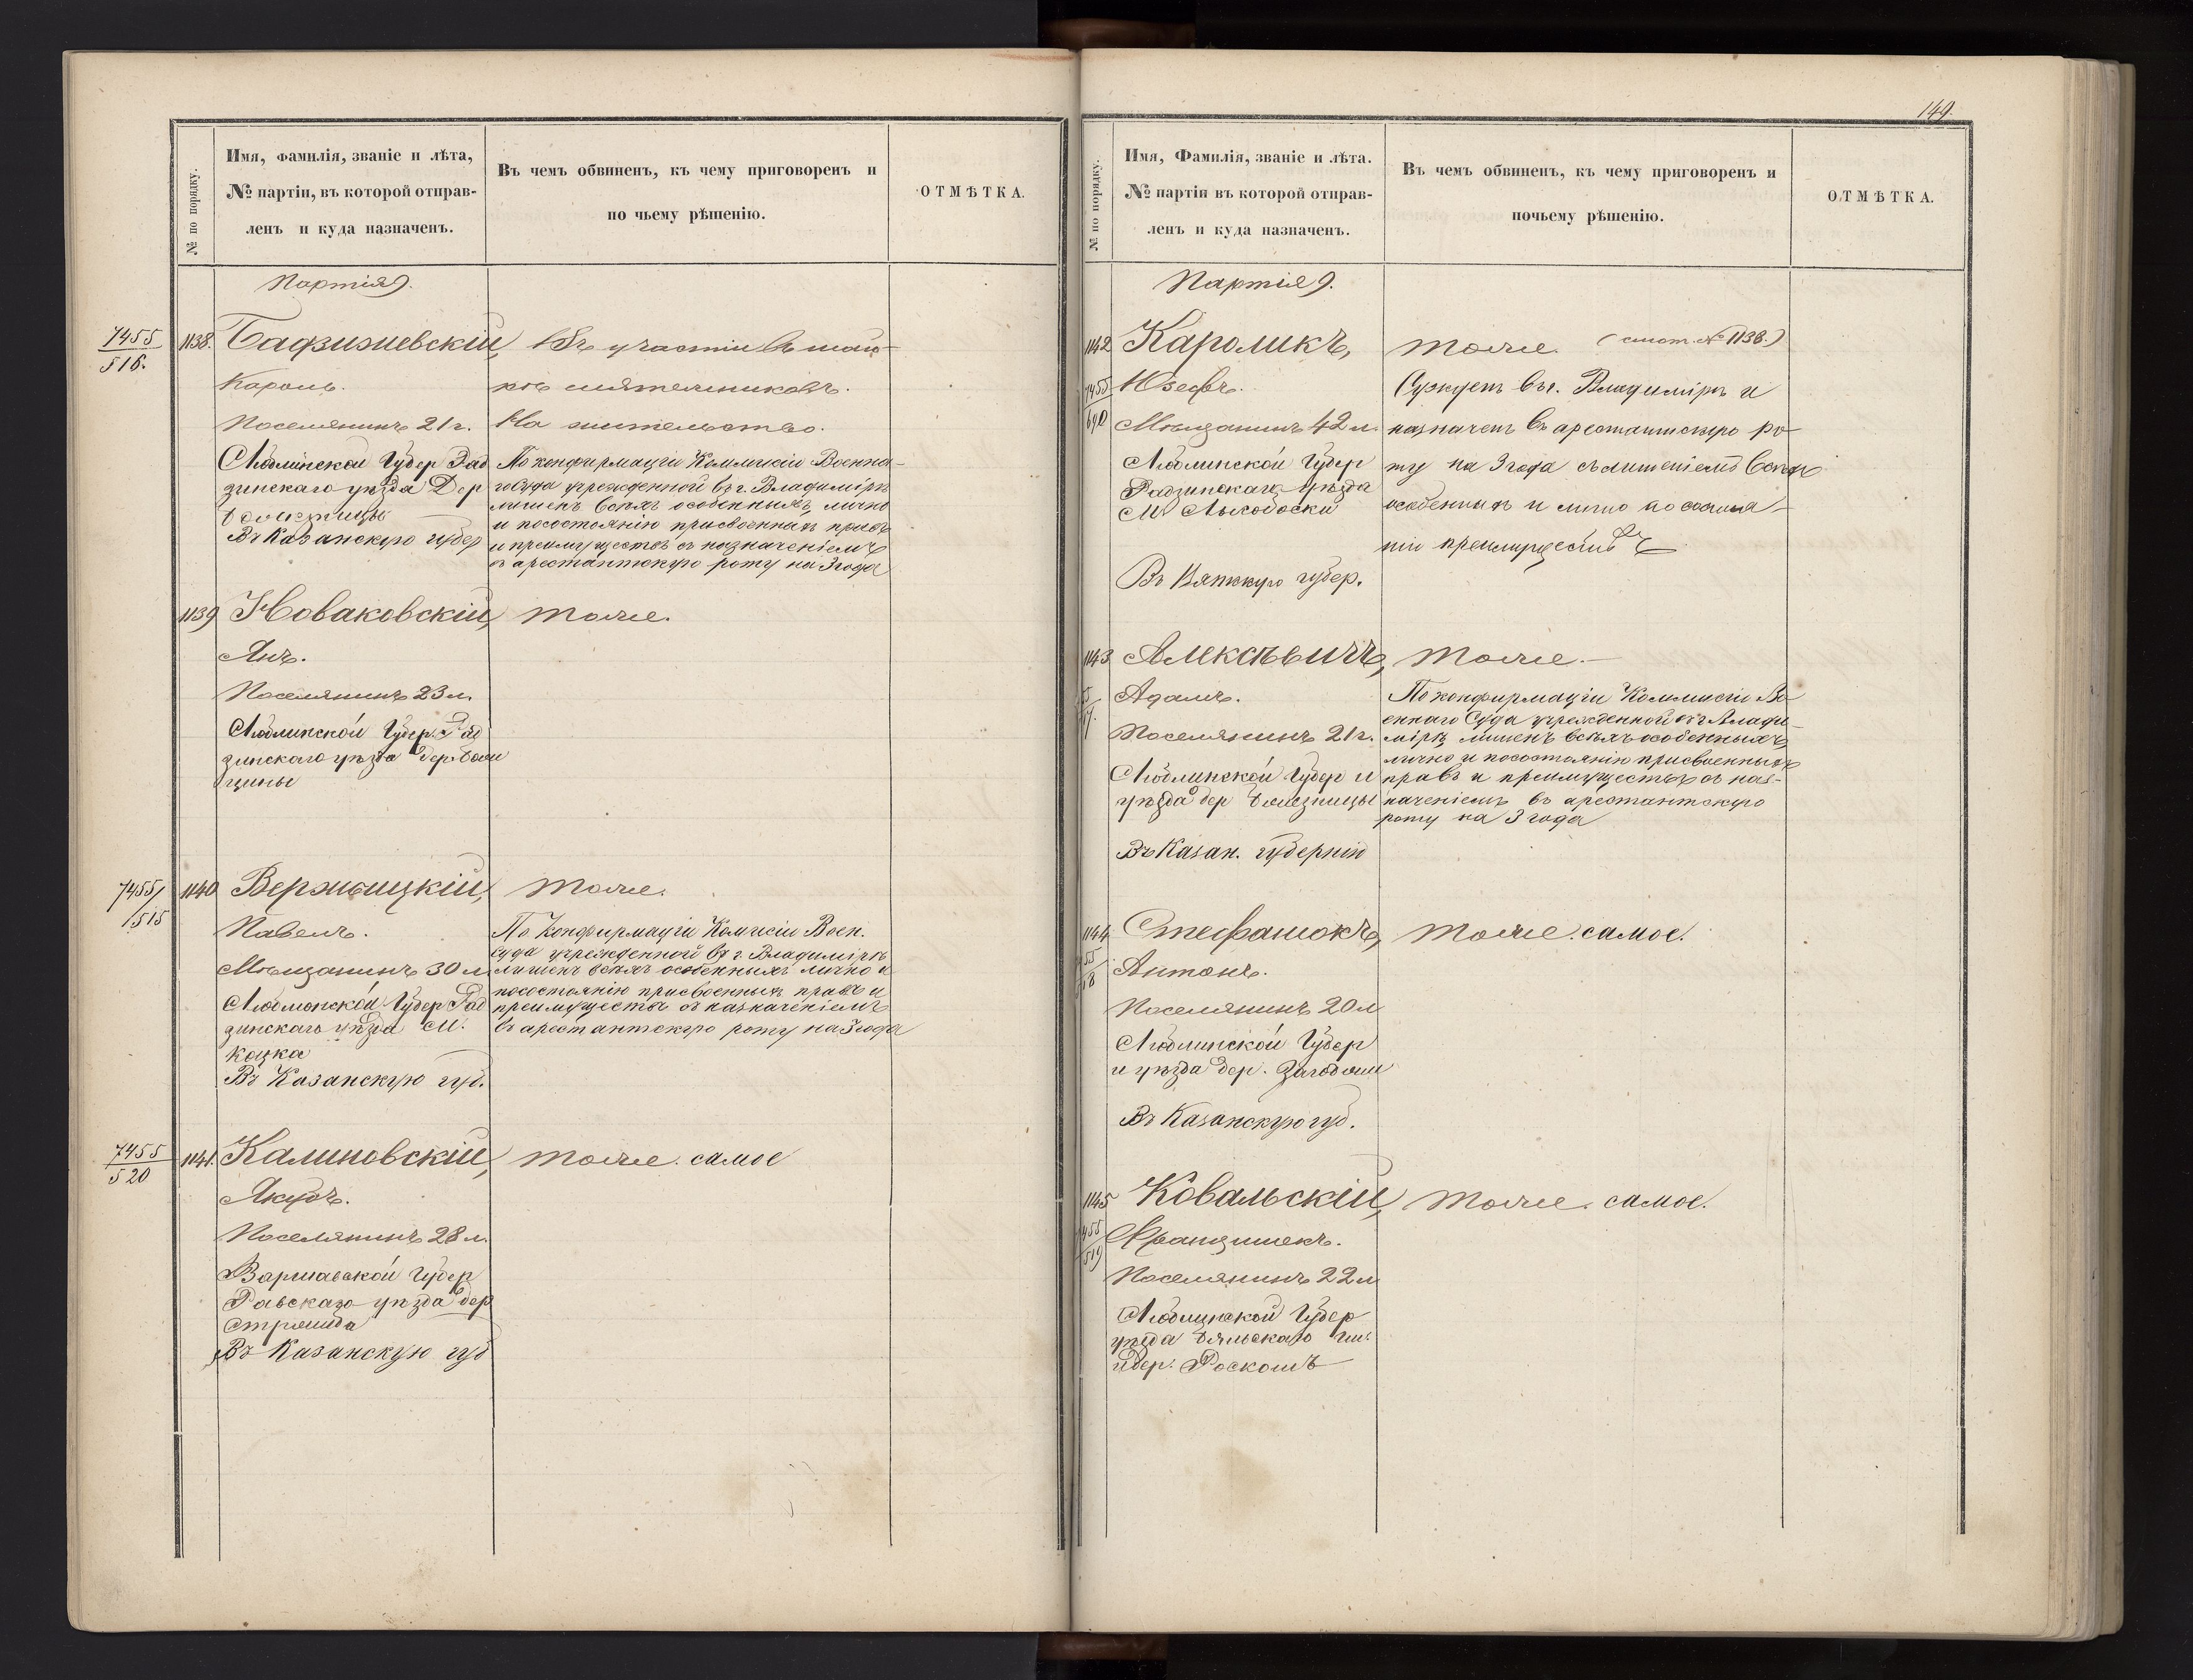 149.
№ по порядку.
Имя, фамилія, званіе и лѣта,
№ партіи, въ которой отправ-
ленъ и куда назначенъ.
Въ чемъ обвиненъ, къ чему приговоренъ и
по чьему рѣшенію.
ОТМѢТКА.
Партія 9.
7455
516.
1138.
Кароль.
Поселянинъ 21 г.
Люблинской Губер Рад
зинскаго уѣзда Дер
Въ Казанскую губер
Въ участіи въ шай-
кѣ мятежниковъ.
На жительство.
По конфирмаціи Коммисіи Военна-
го суда учрежденной въ г. Владимірѣ
лишенъ всѣхъ особенныхъ, лично
и по состоянію присвоенныхъ правъ
и преимуществъ съ назначеніемъ
въ арестантскую роту на 3 года
1139
Новаковскій, тоже.
Янъ.
Поселянинъ 23 л.
Люблинской Губер. Рад
зинскаго уѣзда дер.
7455/
515
1140
Вержбицкій, тоже.
Павелъ.
Мѣщанинъ 30 л.
Люблинской Губер Рад
зинскаго уѣзда М.
Коцка
Въ Казанскую губ.
По Конфирмаціи Комисіи Воен.
суда учрежденной въ г. Владимірѣ
лишенъ всѣхъ особенныхъ лично и
по состоянію присвоенныхъ правъ и
преимуществъ съ назначеніемъ
въ арестантскую роту на 3 года
7455
520
1141.
Калиновскій, тоже. самое
Якубъ.
Поселянинъ 28 л.
Варшавской Губер
Равскаго уѣзда дер
Въ Казанскую губ
№ по порядку.
Имя, Фамилія, званіе и лѣта.
№ партіи въ которой отправ-
ленъ и куда назначенъ.
Въ чемъ обвиненъ, къ чему приговоренъ и
почьему рѣшенію.
ОТМѢТКА.
Партія 9.
1142
Кароликъ, тоже. (смот. № 1138.)
Юзефъ.
Мѣщанинъ 42 л.
Люблинской Губер
Радзинскаго уѣзда
М.
Въ Вятскую губер.
Сужденъ въ г. Владимірѣ и
назначенъ въ арестантскую ро-
ту на 3 года съ лишеніемъ всѣхъ
особенныхъ и лично по состоя-
нію преимуществъ
1143
Алексѣевичъ, тоже.—
Адамъ.
Поселянинъ 21 г.
Люблинской Губер и
уѣзда дер
Въ Казан. губернію
По конфирмаціи Коммисіи Во-
еннаго Суда учрежденной въ г. Влади-
мірѣ лишенъ всѣхъ особенныхъ,
лично и по состоянію присвоенныхъ
правъ и преимуществъ съ наз-
наченіемъ въ арестантскую
роту на 3 года
1144
Стефанюкъ, тоже. самое.
Антонъ.
Поселянинъ 20 л
Люблинской Губер
и уѣзда дер.
Въ Казанскую губ.
1145
Ковальскій, тоже. самое.
519
Францишекъ.
Поселянинъ 22 л
Люблинской Губер
уѣзда Бяльскаго
дер. Роскошъ